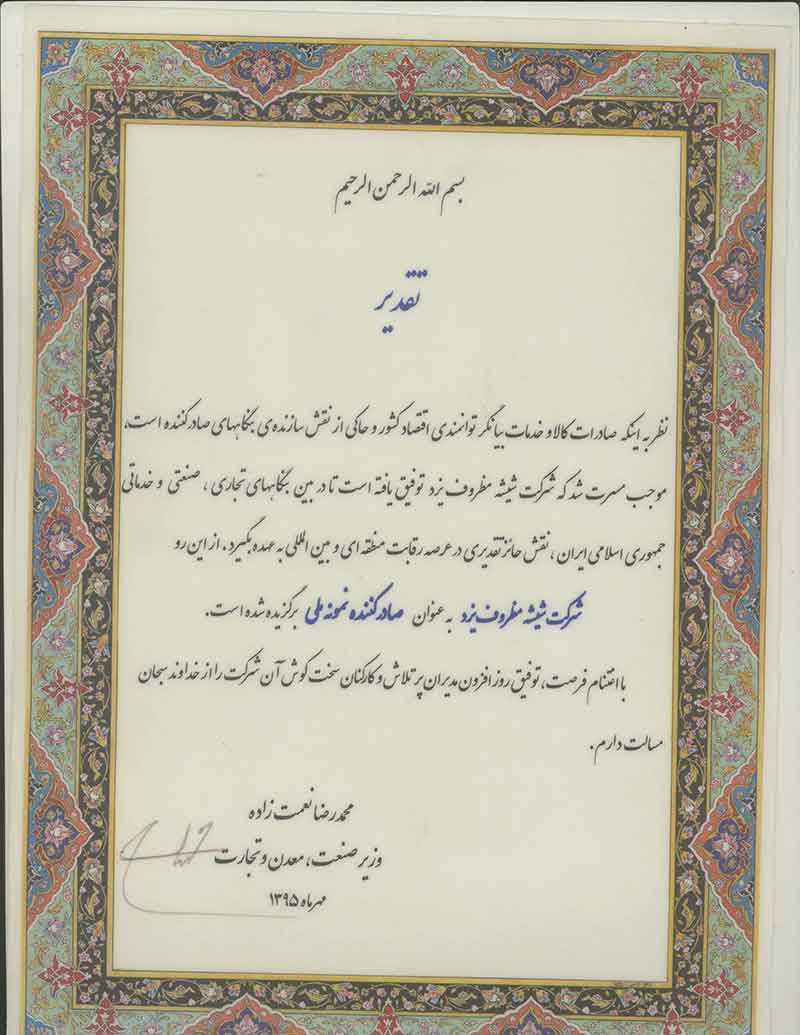 بسم الله الرحمن الرحیم
تقدیر
نظر به اینکه صادرات کالا و خدمات بیانگر توانمندی اقتصاد کشور و حاکی از نقش سازنده‌ی بنگاههای صادرکننده است،
موجب مسرت شد که شرکت شیشه مظروف یزد توفیق یافته است تا در بین بنگاههای تجاری، صنعتی و خدماتی
جمهوری اسلامی ایران، نقش حائز تقدیری در عرصه رقابت منطقه ای و بین المللی به عهده بگیرد. از این رو
شرکت شیشه مظروف یزد به عنوان صادرکننده نمونه ملی برگزیده شده است.
با اغتنام فرصت، توفیق روزافزون مدیران پرتلاش و کارکنان سخت کوش آن شرکت را از خداوند سبحان
مسالت دارم.
محمدرضا نعمت زاده
وزیر صنعت، معدن و تجارت
مهرماه ۱۳۹۵